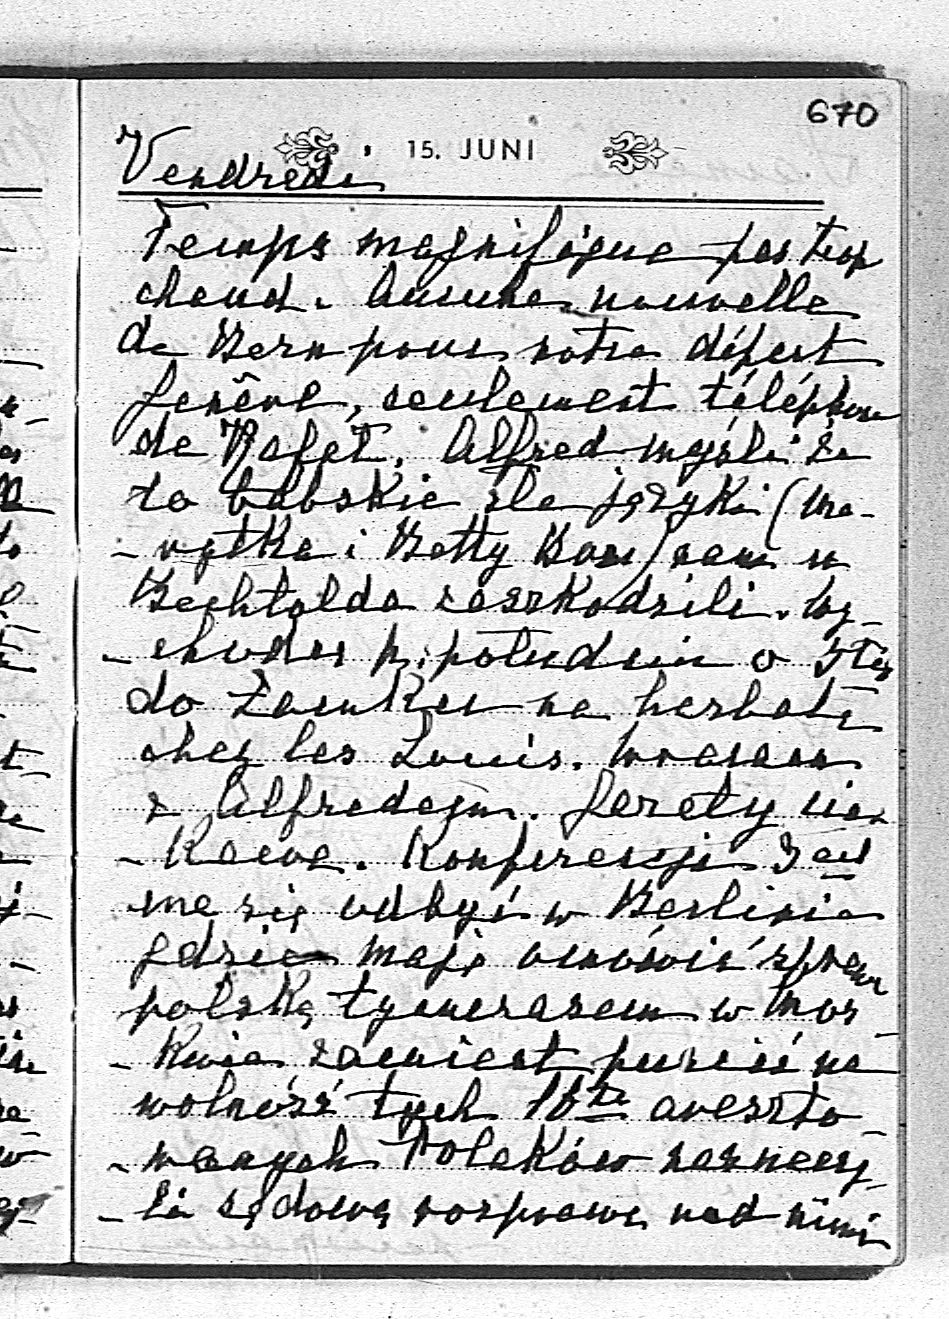 670
15. JUNI
Vendredi
Temps magnifique pas trop
chaud. Aucune nouvelle
de Bern pour notre départ
Genêve, seulement téléphone
de Rafet. Alfred myśli że
to babskie złe języki (Ma-
- rytka i Betty Bon) nam u
Bechtolda zaszkodzili. Wy-
- chodzi p. południu o 5tej
do Zamku na herbatę
chez les Louis. Wracam
z Alfredem. Gazety cie-
- kawe. Konferencja 3ch
ma się odbyć w Berlinie
gdzie mają omówić spraw
polską tymczasem w Mos-
- kwie zamiast puścić na
wolność tych 16te areszto-
- wanych Polaków zaczęły
- się sądową rozprawę nad nimi